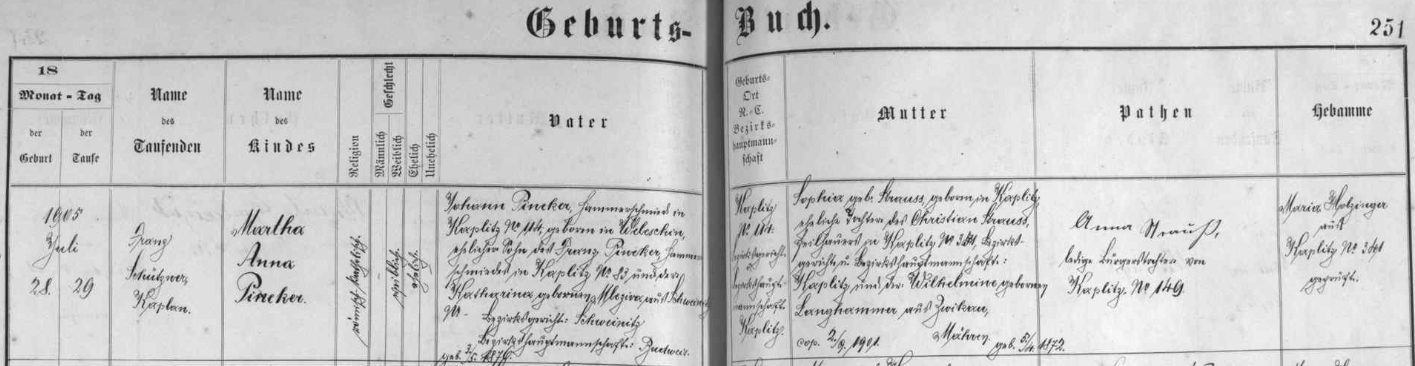 Geburts-Buch.
251
18
Monat - Tag
der Geburt
der Taufe
Name des Taufenden
Name des Kindes
Religion
Geschlecht
Männlich
Weiblich
Ehelich
Unehelich
Vater
Geburts-Ort N.-C. Bezirkshauptmannschaft
Mutter
Pathen
Hebamme
1905
Juli
28. 29
Franz
Kaplan.
Martha
Anna
Pincker.
römisch katholisch.
weiblich.
ehelich.
Johann Pincker, Hammerschmied in
Kaplitz No 114, geboren in
ehelicher Sohn des Franz Pincker, Hammer-
schmiedes in Kaplitz No 83 und der
Katharina gebornen aus Schweinitz
Bezirksgericht: Schweinitz
Bezirkshauptmannschaft: Budweis.
geb.
Kaplitz
No 114.
Bezirksgericht:
Bezirkshaupt-
mannschaft:
Kaplitz.
Sophia geb. Strauss, geboren in Kaplitz
eheliche Tochter des Christian Strauss,
in Kaplitz No 341, Bezirks-
gericht u. Bezirkshauptmannschaft:
Kaplitz, und der Wilhelmine gebornen
Langhammer aus Zwittau,
cop. 2/9. 1901. Mähren. geb. 1872.
Anna Strauß,
ledige Bürgerstochter von
Kaplitz No 149
Maria Hotzinger
aus
Kaplitz No 341
geprüft.